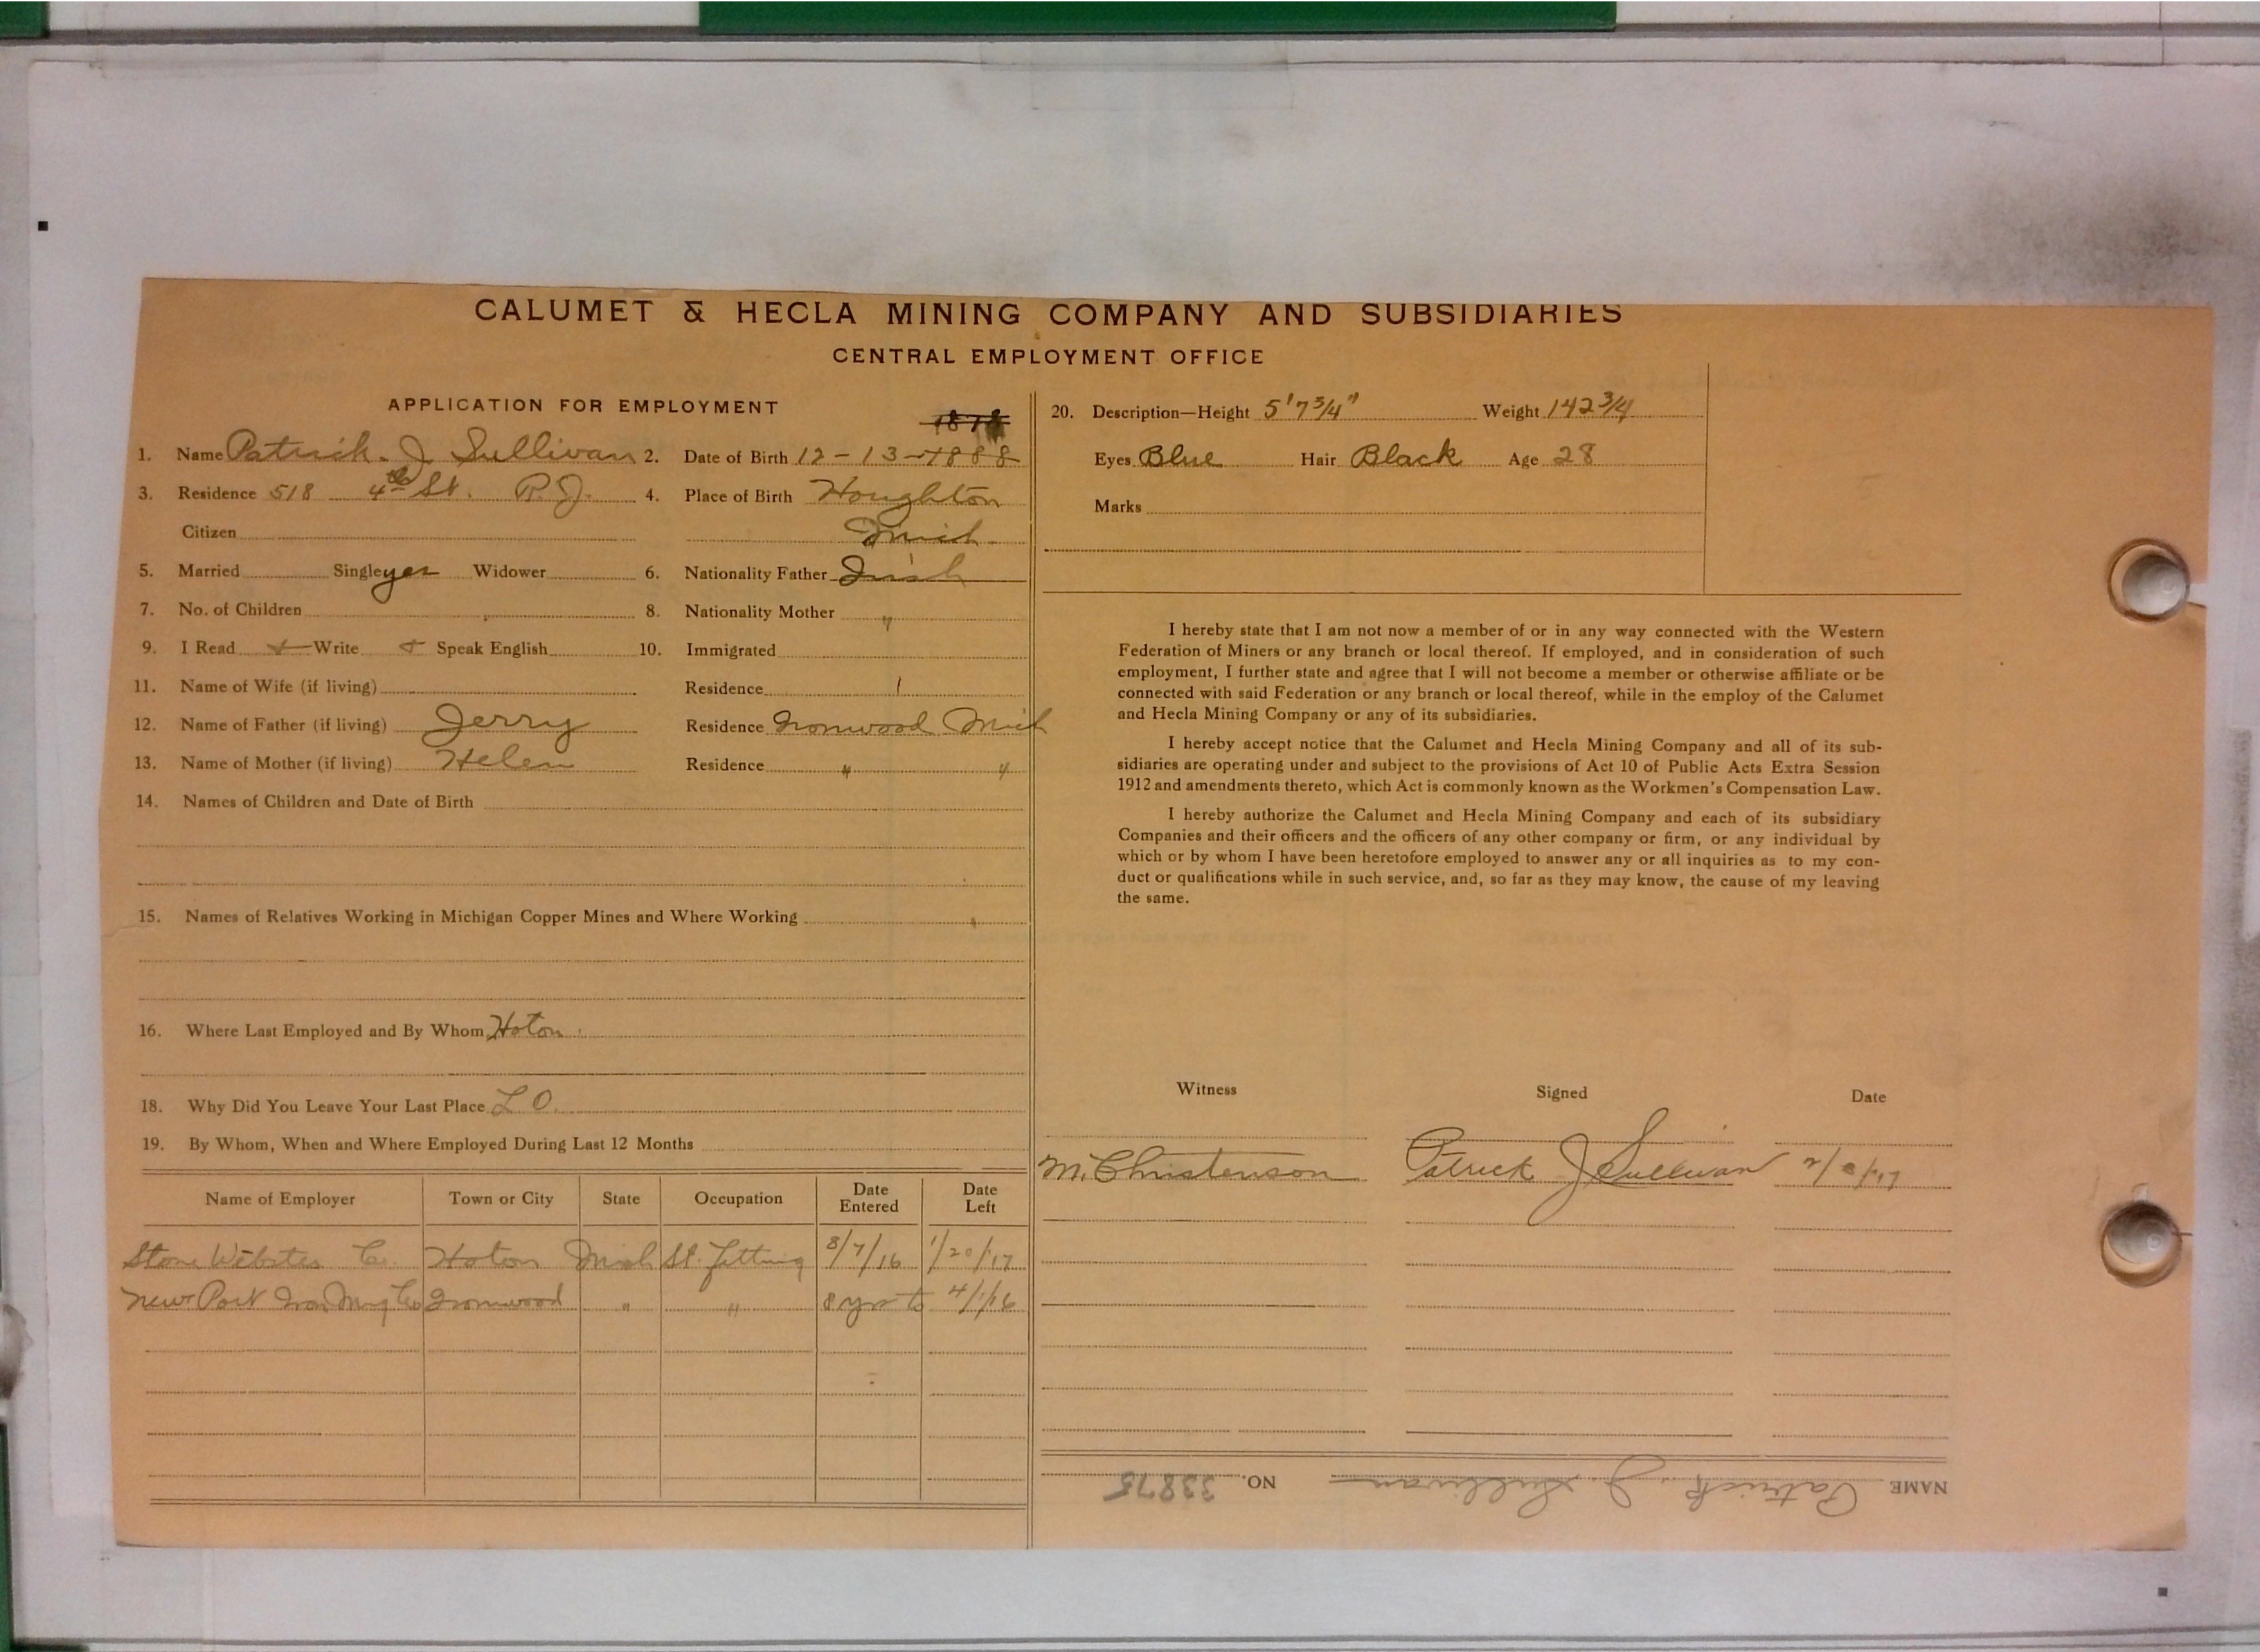 CALUMET & HECLA MINING COMPANY AND SUBSIDIARIES
CENTRAL EMPLOYMENT OFFICE
APPLICATION FOR EMPLOYMENT
1878
1. Name Patrick. J Sullivan 2. Date of Birth 12-13-1888
3. Residence 518 4th St. R.J. 4. Place of Birth Houghton
Citizen Mich
5. Married Single yes Widower 6. Nationality Father Irish
7. No. of Children 8. Nationality Mother "
9. I Read + Write + Speak English 10. Immigrated
11. Name of Wife (if living) Residence
12. Name of Father (if living) Jerry Residence Ironwood Mich
13. Name of Mother (if living) Helen Residence " "
14. Names of Children and Date of Birth
15. Names of Relatives Working in Michigan Copper Mines and Where Working
16. Where Last Employed and By Whom Hoton
18. Why Did You Leave Your Last Place L O.
19. By Whom, When and Where Employed During Last 12 Months
Name of Employer Town or City State Occupation Date Entered Date Left
Stone Webster Co. Hoton Mich St. Fitting 8/7/16 1/20/17
New Port Iron Mng Co Ironwood " " 8 yrs to 4/1/16
20. Description—Height 5'7 3/4" Weight 142 3/4
Eyes Blue Hair Black Age 28
Marks
I hereby state that I am not now a member of or in any way connected with the Western
Federation of Miners or any branch or local thereof. If employed, and in consideration of such
employment, I further state and agree that I will not become a member or otherwise affiliate or be
connected with said Federation or any branch or local thereof, while in the employ of the Calumet
and Hecla Mining Company or any of its subsidiaries.
I hereby accept notice that the Calumet and Hecla Mining Company and all of its sub-
sidiaries are operating under and subject to the provisions of Act 10 of Public Acts Extra Session
1912 and amendments thereto, which Act is commonly known as the Workmen's Compensation Law.
I hereby authorize the Calumet and Hecla Mining Company and each of its subsidiary
Companies and their officers and the officers of any other company or firm, or any individual by
which or by whom I have been heretofore employed to answer any or all inquiries as to my con-
duct or qualifications while in such service, and, so far as they may know, the cause of my leaving
the same.
Witness Signed Date
M. Christenson Patrick J Sullivan
NAME Patrick J. Sullivan NO. 33875